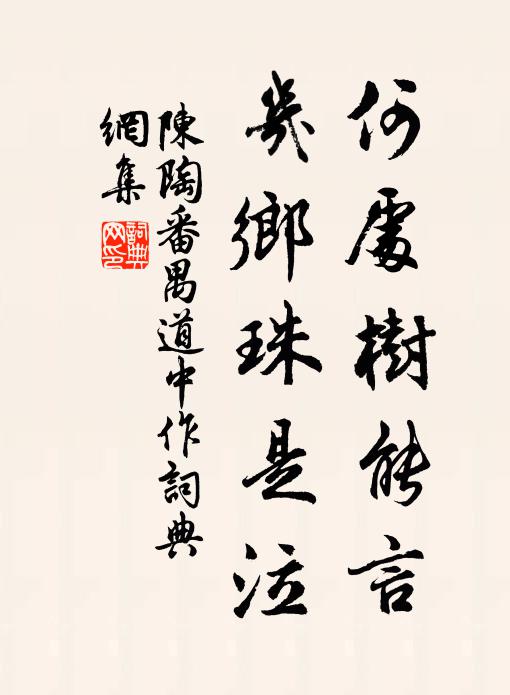 何處樹能言
幾鄉珠是泣
陳陶番禺道中作詞典
網集
詞典网印